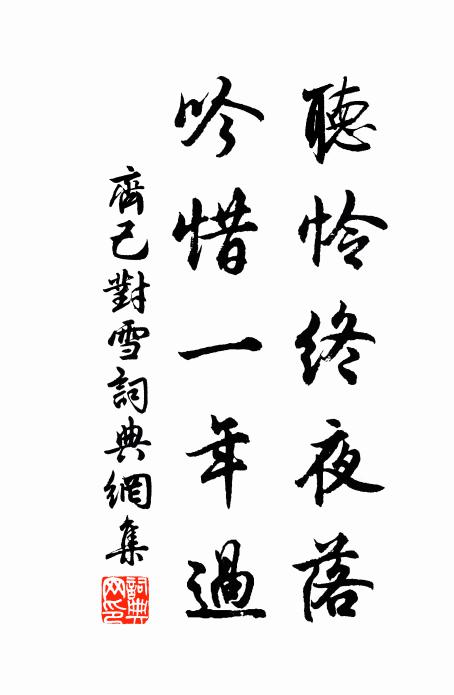 聽怜終夜落
吟惜一年過
齊己對雪詞典網集
詞典网印